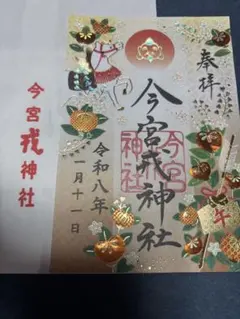 奉拝
今宮戎神社
今宮
神社
令和八年
一月十一日
午
今宮戎神社